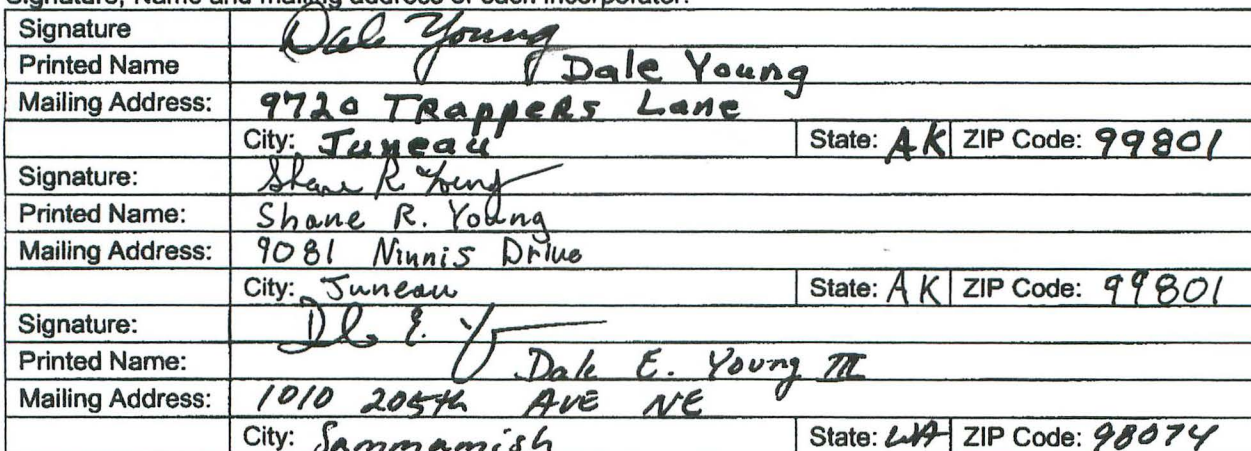 Signature, Name and mailing address of each incorporator:
Signature Dale Young
Printed Name Dale Young
Mailing Address: 9720 TRappeRs Lane
City: Juneau State: AK ZIP Code: 99801
Signature: Shane R. Young
Printed Name: Shane R. Young
Mailing Address: 9081 Ninnis Drive
City: Juneau State: AK ZIP Code: 99801
Signature: Dle E. Y
Printed Name: Dale E. Young III
Mailing Address: 1010 205th AVE NE
City: Sammamish State: WA ZIP Code: 98074